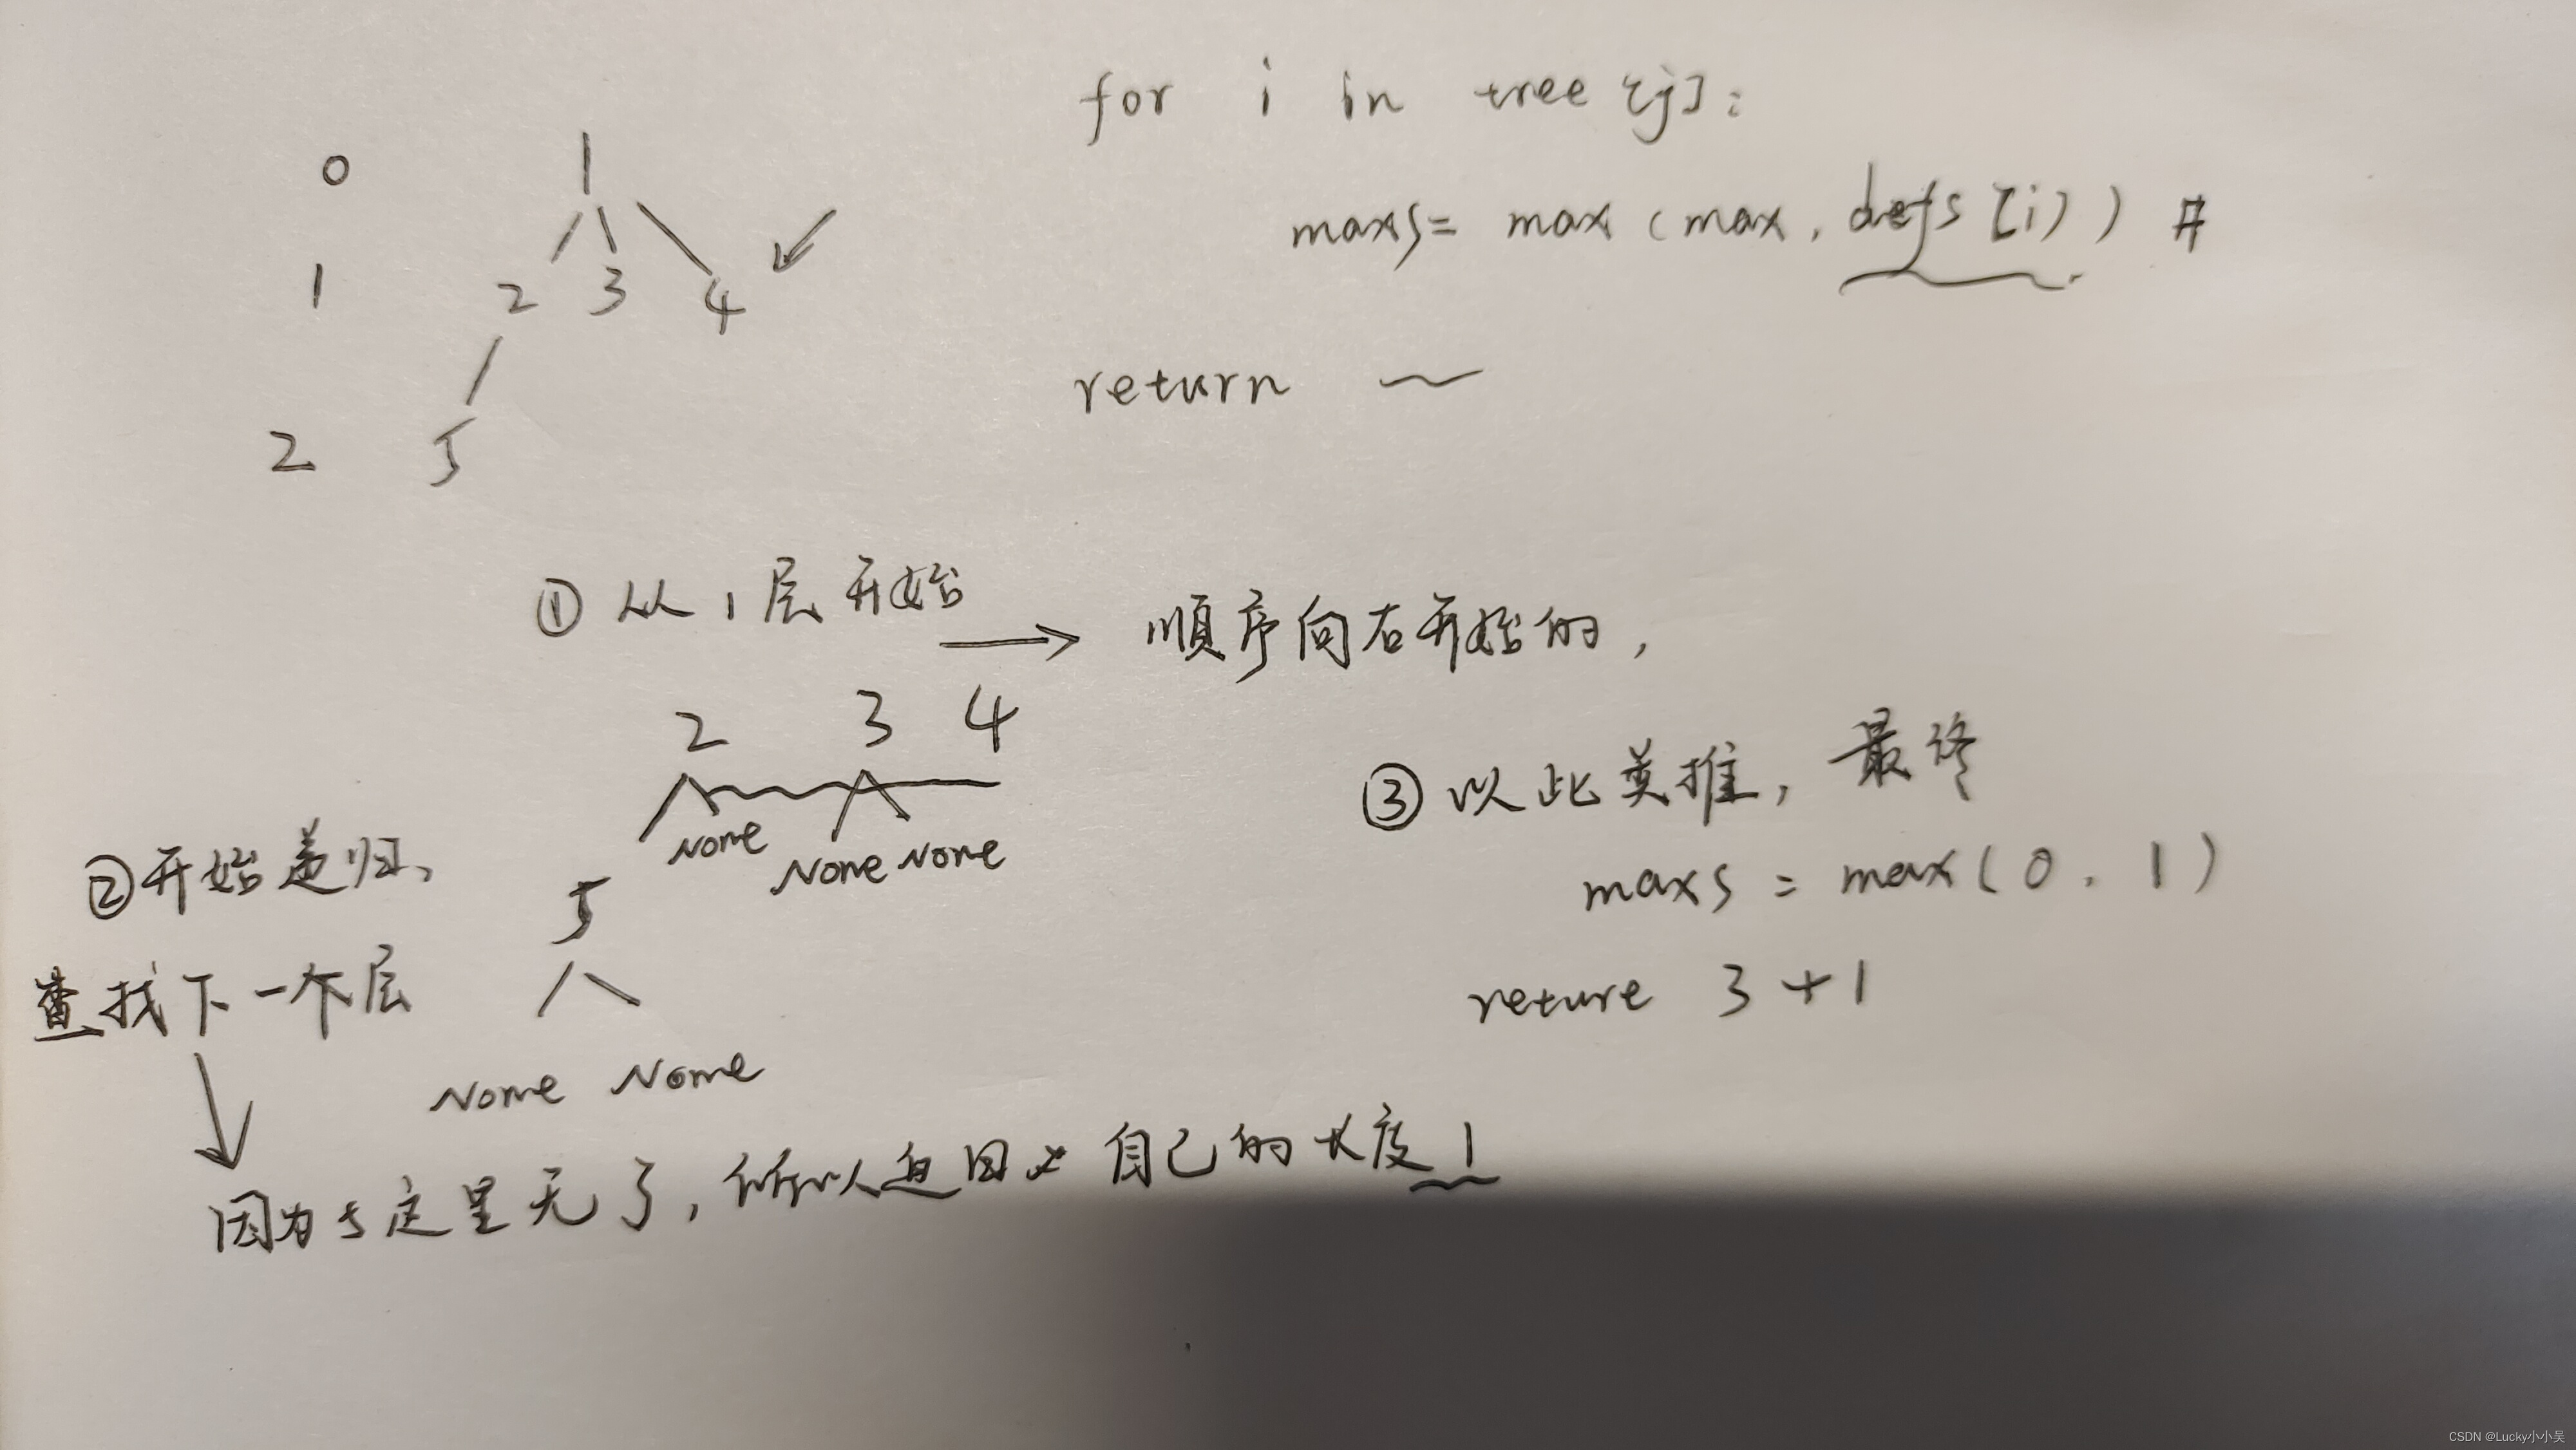 0 1
1 2 3 4
2 5
for i in tree[j]:
maxs= max(max, defs[i)) #
return
① 从1层开始
顺序向右开始的,
2 3 4
None None None
②开始递归,
查找下一个层
5
None None
因为5这里无了,所以返回 自己的长度1
③ 以此类推, 最终
maxs = max(0, 1)
reture 3+1
CSDN @Lucky小小吴